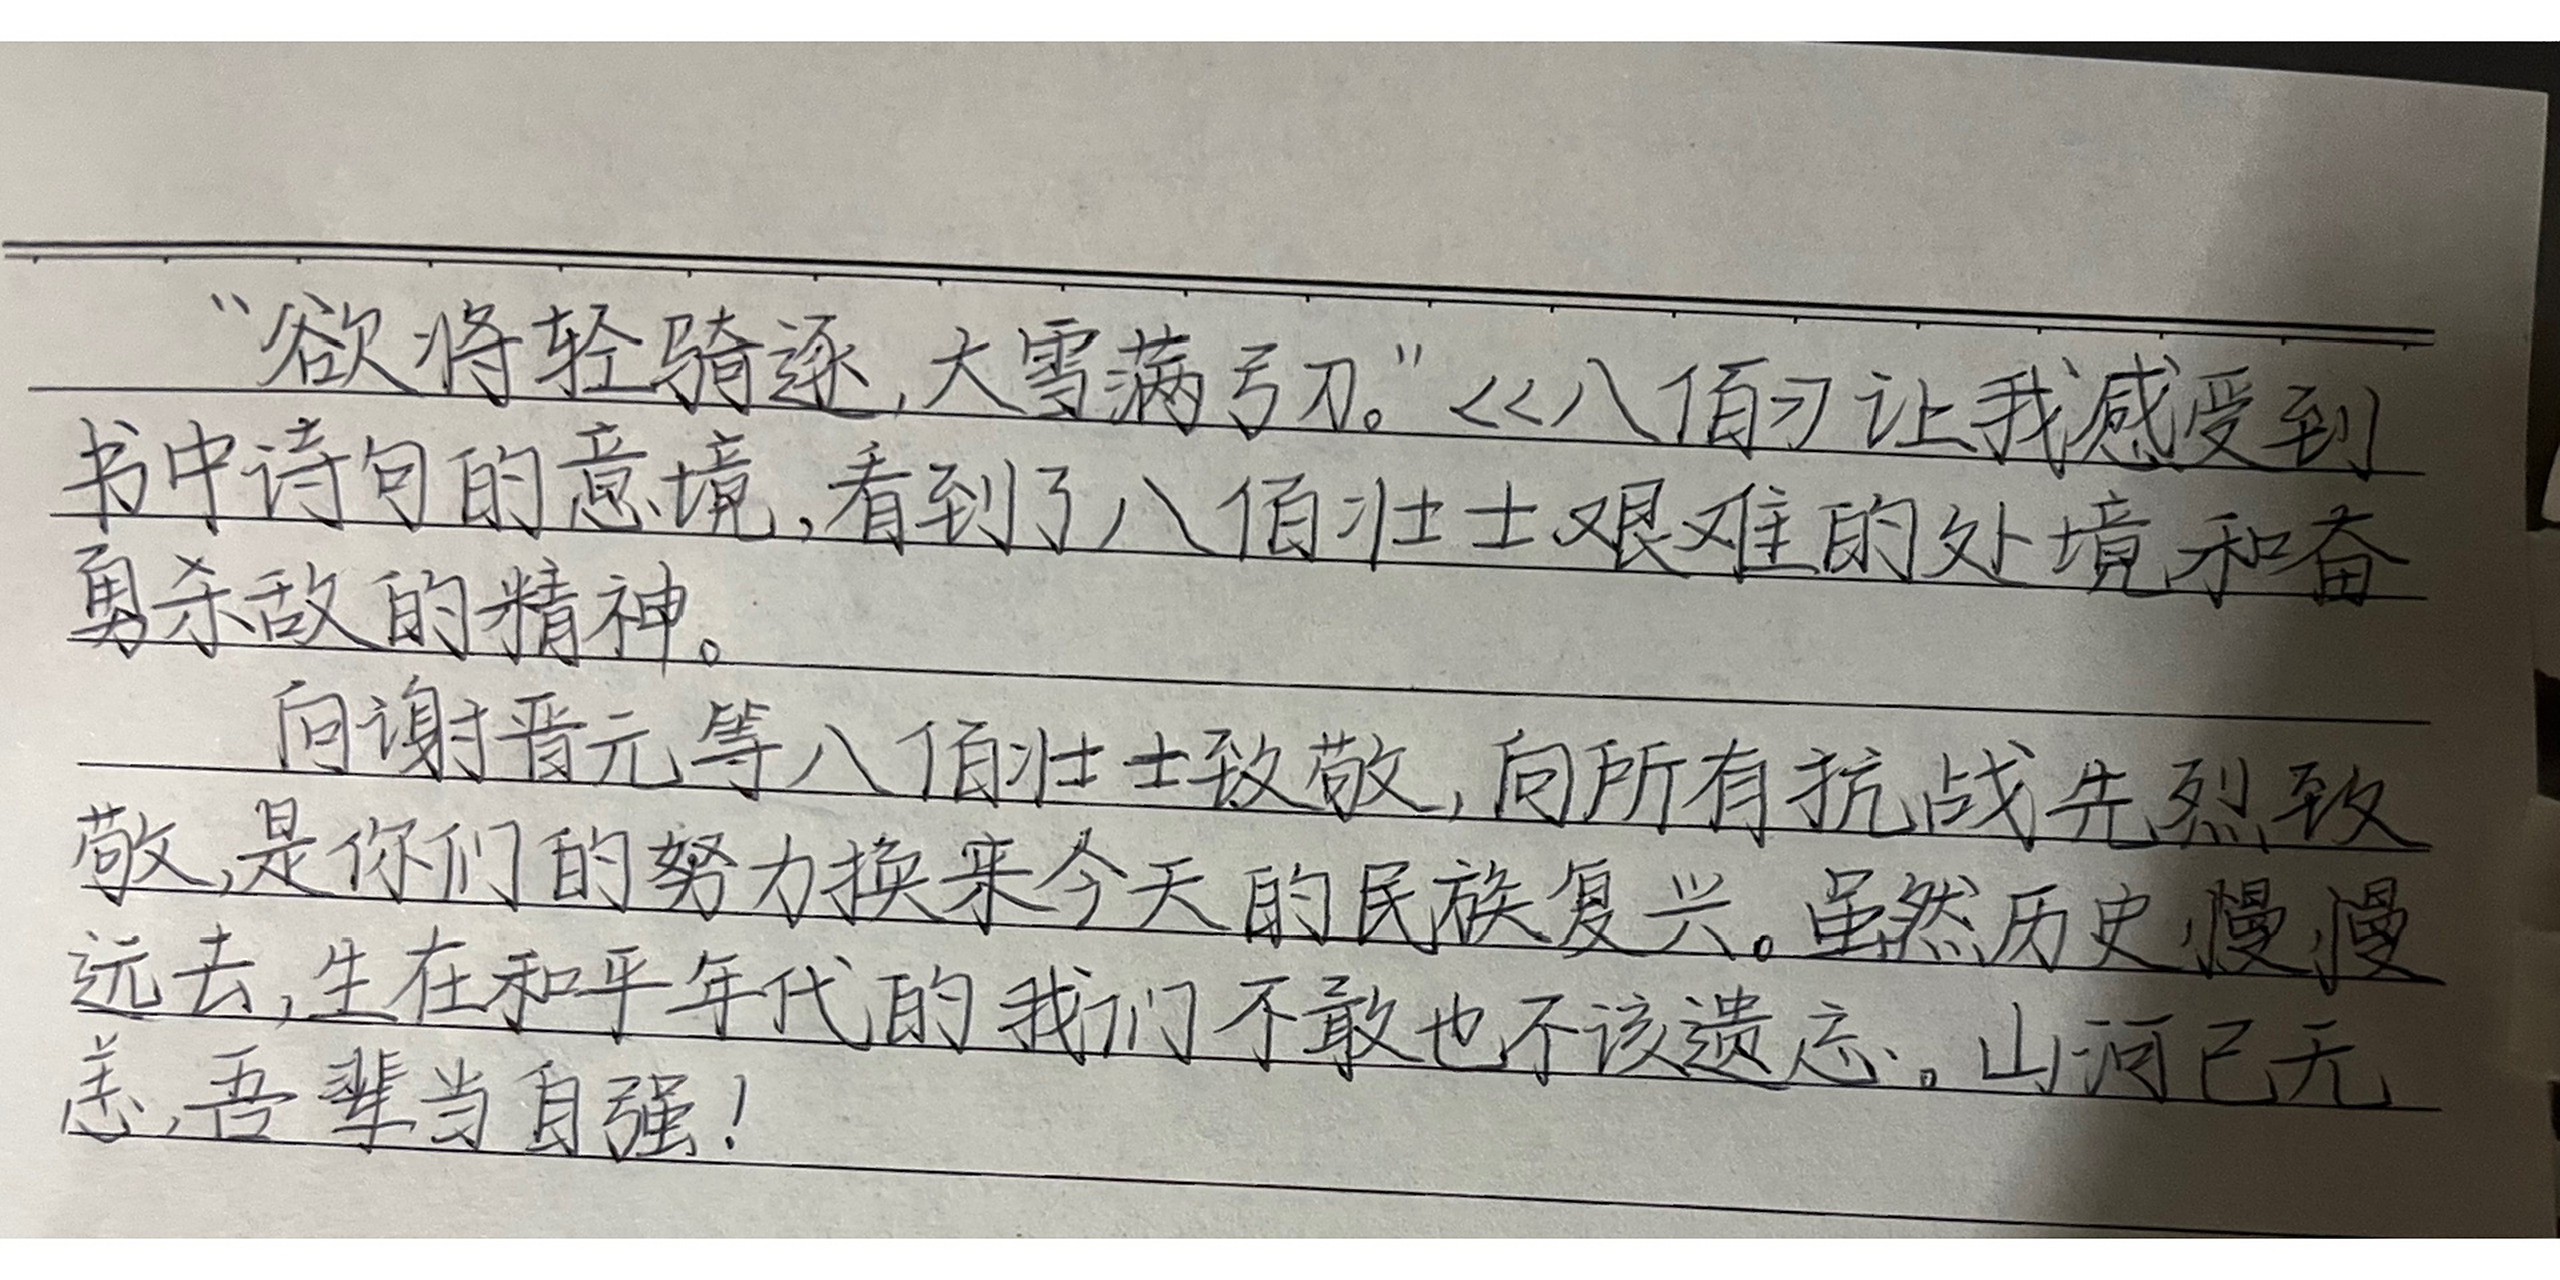 “欲将轻骑逐，大雪满弓刀。”《八佰》让我感受到
书中诗句的意境，看到了八佰壮士艰难的处境和奋
勇杀敌的精神。
向谢晋元等八佰壮士致敬，向所有抗战先烈致
敬，是你们的努力换来今天的民族复兴。虽然历史慢慢
远去，生在和平年代的我们不敢也不该遗忘。山河已无
恙，吾辈当自强！